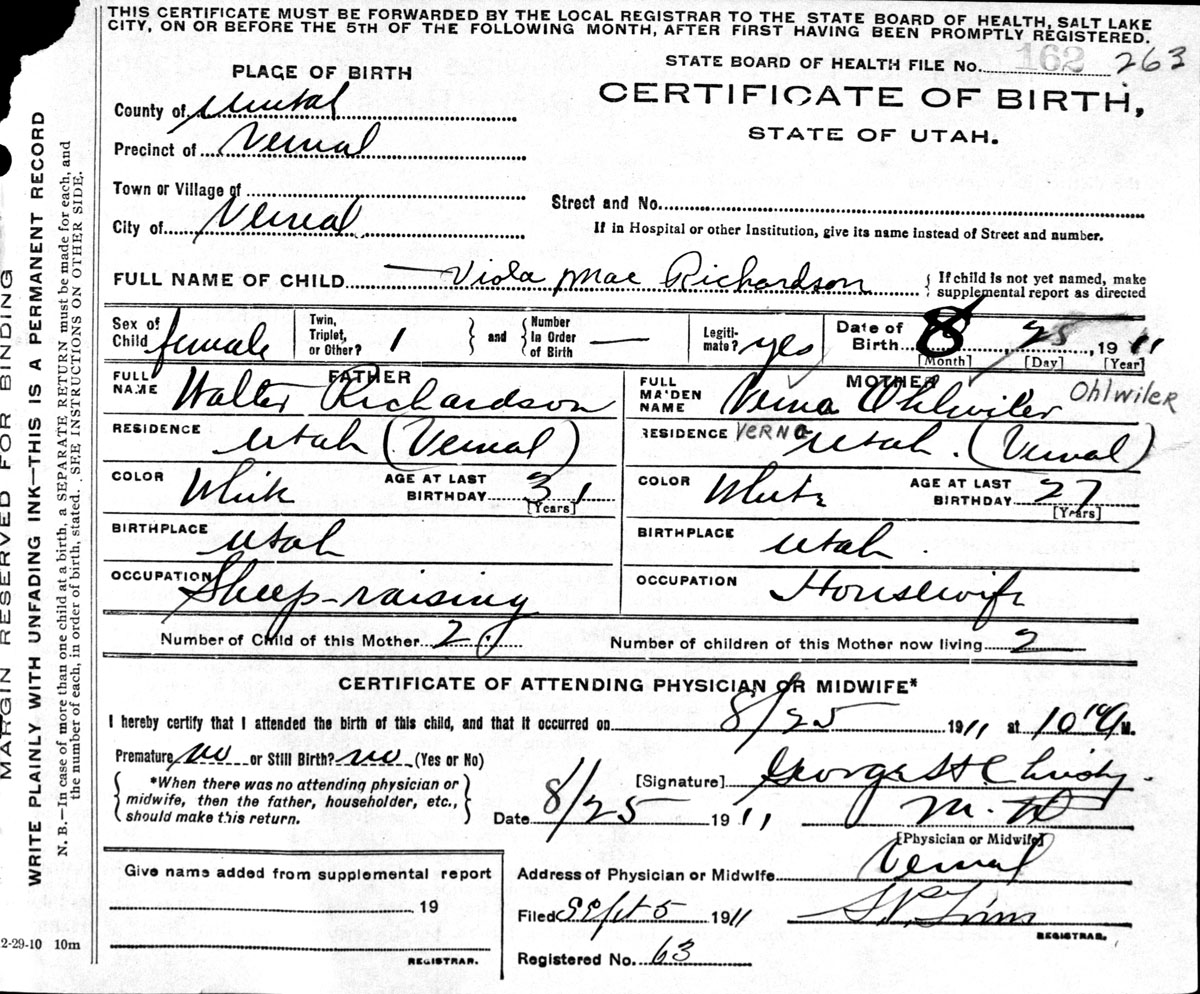 THIS CERTIFICATE MUST BE FORWARDED BY THE LOCAL REGISTRAR TO THE STATE BOARD OF HEALTH, SALT LAKE
CITY, ON OR BEFORE THE 5TH OF THE FOLLOWING MONTH, AFTER FIRST HAVING BEEN PROMPTLY REGISTERED.
STATE BOARD OF HEALTH FILE No. 162 263
PLACE OF BIRTH
CERTIFICATE OF BIRTH,
STATE OF UTAH.
County of Uintah
Precinct of Vernal
Town or Village of
Street and No.
City of Vernal
If in Hospital or other Institution, give its name instead of Street and number.
FULL NAME OF CHILD Viola Mae Richardson { If child is not yet named, make supplemental report as directed
Sex of Child female Twin, Triplet, or Other? 1 } and { Number In Order of Birth — Legiti-mate? yes Date of Birth 8, 25, 1911
[Month] [Day] [Year]
FATHER
MOTHER
FULL NAME Walter Richardson
FULL MAIDEN NAME Verna Ohlwiler Ohlwiler
RESIDENCE Utah (Vernal)
RESIDENCE VERNA Utah. (Vernal)
COLOR White AGE AT LAST BIRTHDAY 31 [Years]
COLOR White AGE AT LAST BIRTHDAY 27 [Years]
BIRTHPLACE Utah
BIRTHPLACE Utah.
OCCUPATION Sheep-raising
OCCUPATION Housewife
Number of Child of this Mother 2
Number of children of this Mother now living 2
CERTIFICATE OF ATTENDING PHYSICIAN OR MIDWIFE*
I hereby certify that I attended the birth of this child, and that it occurred on 8/25 1911 at 10 M.
Premature no or Still Birth? no (Yes or No)
{ *When there was no attending physician or midwife, then the father, householder, etc., should make this return. }
[Signature] George H Christy.
Date 8/25 1911 M.D
[Physician or Midwife]
Address of Physician or Midwife Vernal
Filed Sept 5 1911
REGISTRAR.
Registered No. 63
Give name added from supplemental report
19
REGISTRAR.
2-29-10 10m
MARGIN RESERVED FOR BINDING
WRITE PLAINLY WITH UNFADING INK—THIS IS A PERMANENT RECORD
N. B.—In case of more than one child at a birth, a SEPARATE RETURN must be made for each, and
the number of each, in order of birth, stated. SEE INSTRUCTIONS ON OTHER SIDE.